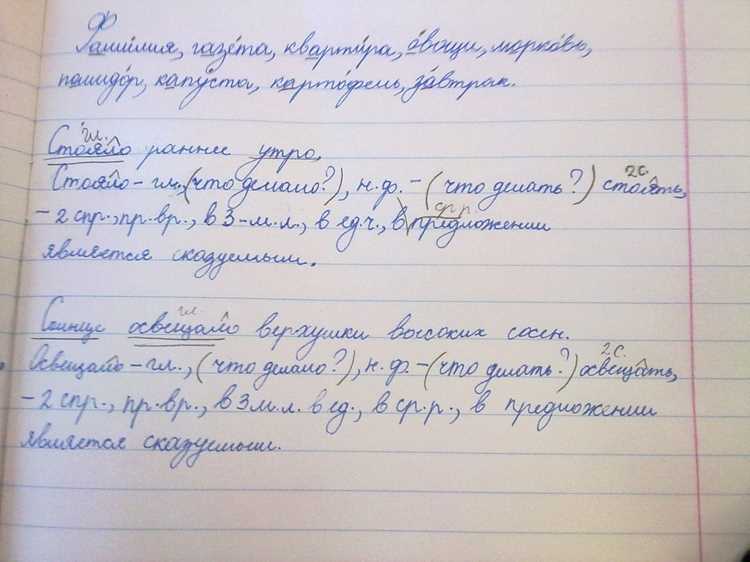 Ф
Фамилия, газета, квартира, овощи, морковь,
помидор, капуста, картофель, завтрак.
гл.
Стояло раннее утро.
2С.
Стояло-гл., (что делало?), н.ф.-(что делать?) стоять,
ср.р.
-2 спр., пр.вр., в 3-м.л., в ед.ч., в предложении
является сказуемым.
гл.
Солнце освещало верхушки высоких сосен.
2С.
Освещало-гл., (что делало?), н.ф.-(что делать?) освещать,
-2 спр., пр.вр., в 3м.л. в ед., в ср.р., в предложении
является сказуемым.